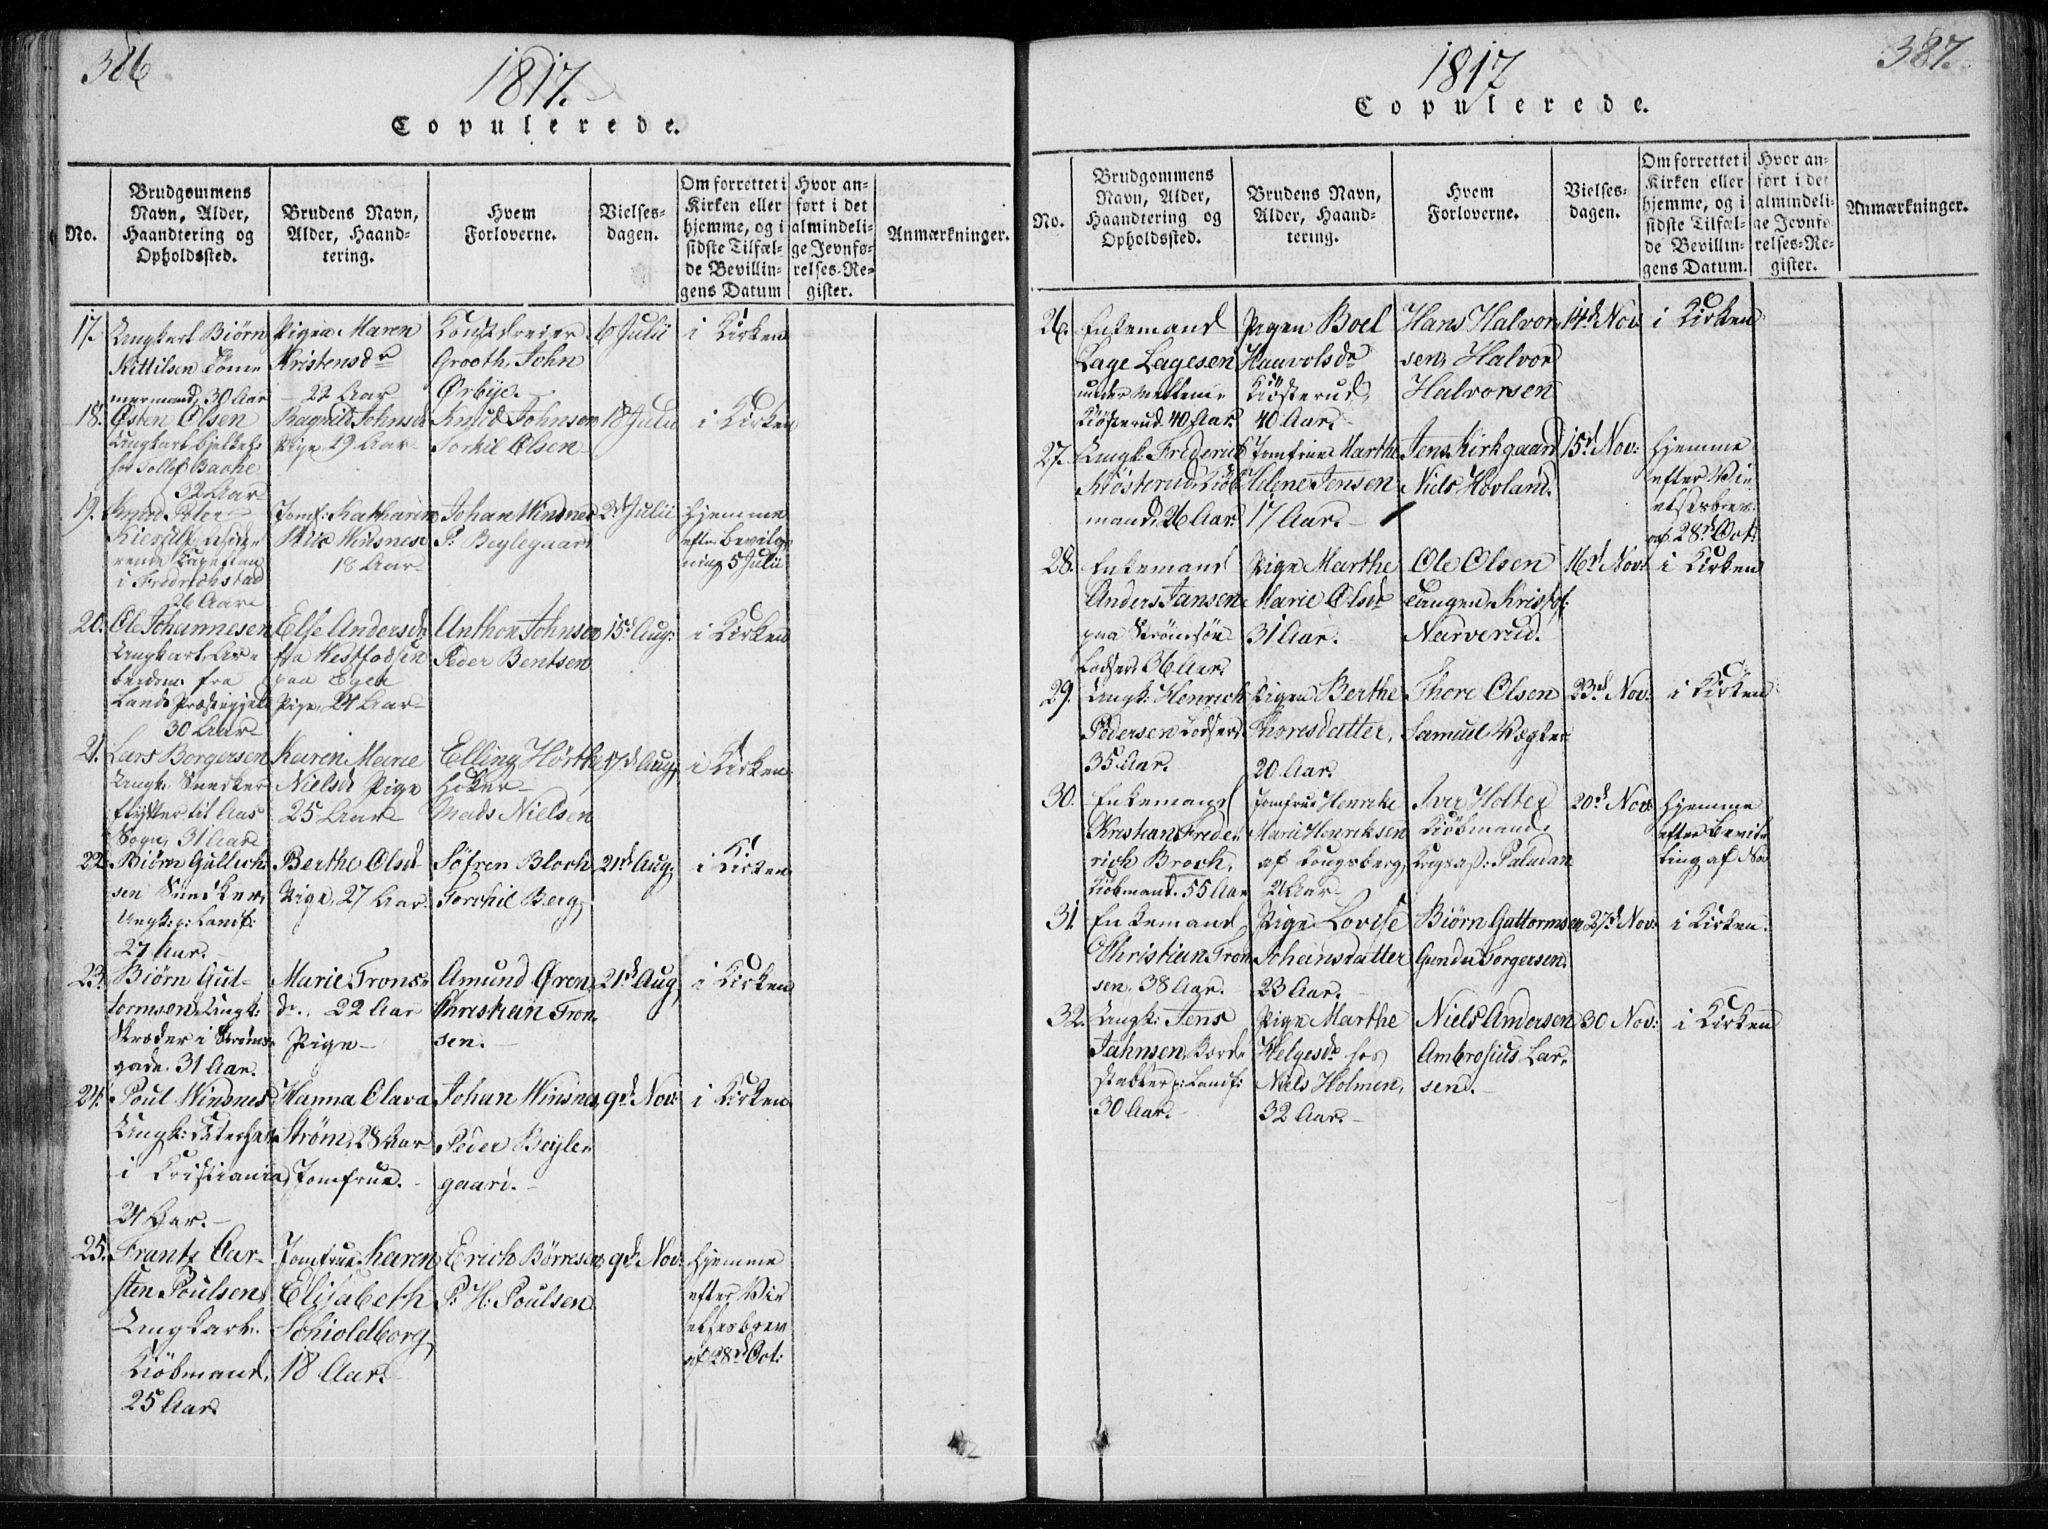 386
1817.
Copulerede.
No.
Brudgommens Navn, Alder, Haandtering og Opholdssted.
Brudens Navn, Alder, Haandtering.
Hvem Forloverne.
Vielsesdagen.
Om forrettet i Kirken eller hjemme, og i sidste Tilfælde Bevillingens Datum
Hvor anført i det almindelige Jevnførelses-Register.
Anmærkninger.
17. Ungkarl Biørn
Kittilsen Tømmermand, 30 Aar
Pigen Maren
Kristensdr
22 Aar
Grooth, John
Ørbye.
6 Julii
i Kirken
18. Østen Olsen
32 Aar
Ragnild Johnsd
Pige 29 Aar
Knud Johnsen
Torkil Olsen
18 Julii
i Kirken
19. Knud Peter
i Fredrichstad
26 Aar
Jomf: Katharin
18 Aar
Johan Winsnes
P. Beylegaard
2d Julii
Hjemme
efter Bevilgning 5 Julii
20. Ole Johannesen
Ungkarl
fra
Lands Præstegjeld
30 Aar
Else Andersdr
fra Westfossen
paa Egen
Pige, 24 Aar
Anthon Johnsen
Peder Bentsen
15d Aug:
i Kirken
21. Lars Borgersen
Ungk: Snedker
flytter til Aas
Sogn, 31 Aar
Karen Marie
Nielsd Pige
25 Aar
Elling Hørthe
Høker
Mads Nielsen
17d Aug:
i Kirken
22. Biørn Gulliksen
Snedker,
Ungk: p: Landf:
27 Aar.
Berthe Olsd
Pige, 27 Aar.
Söfren Bloch
Torchil Berg,
21d Aug:
i Kirken
23. Biørn Guttormsen, Ungk:
Skræder i Strømsgade. 31 Aar.
Marie Tronsdr., 22 Aar
Pige
Amund Øren
Christian Tronsen.
21d Aug
i Kirken
24. Poul Winsnes
Ungk:
i Christiania,
24 Aar.
Hanna Clara
Strøm, 28 Aar
Jomfrue.
Johan Winsnes
Peder Beylegaard.
9d Nov:
i Kirken
25. Frantz Carsten Poulsen,
Ungkarl.
Kiöbmand,
25 Aar
Jomfrue Karen
Elisabeth
Schioldborg,
18 Aar.
Erich Börresen
P: H: Poulsen.
9d Nov:
Hjemme
efter Vielsesbrev
af 28d Oct:
387.
1817
Copulerede.
No.
Brudgommens Navn, Alder, Haandtering og Opholdssted.
Brudens Navn, Alder, Haandtering.
Hvem Forloverne.
Vielsesdagen.
Om forrettet i Kirken eller hjemme, og i sidste Tilfælde Bevillingens Datum.
Hvor anført i det almindelige Jevnførelses-Register.
Anmærkninger.
26. Enkemand
Lage Lagesen
under Mellem
Kiösterud 40 Aar.
Pigen Boel
Hauvolsdr
Kiösterud,
40 Aar.
Hans Halvorsen, Halvor
Halvorsen
14d Nov
i Kirken
27. Ungk: Frederich
Kiösterud, Kiöbmand, 26 Aar.
Jomfrue Marthe
Helene Jensen
17 Aar.
Jens Kirkgaard
Niels Hovland.
15d Nov:
Hjemme
efter Vielsesbrev
af 28d Oct:
28. Enkemand
Anders Jansen
paa Strømsøe
Lodser. 36 Aar.
Pige Marthe
Marie Olsd
31 Aar.
Ole Olsen
Tangen, Kristof:
Narverud.
16d Nov:
i Kirken
29. Ungk: Henrich
Pedersen Lodser,
35 Aar.
Pigen Berthe
Thoresdatter,
20 Aar.
Thore Olsen
Samuel Vægter
23d Nov:
i Kirken
30. Enkemand
Kristian Frederich Broch,
Kiöbmand. 55 Aar
Jomfrue Henrike
Marie Henriksen
af Kongsberg,
Aar
Iver Holter
Kiöbmand,
Krigsass: Paludan
20d Nov:
Hjemme
efter Bevilling af Nov
31. Enkemand,
Christian Tronsen. 38 Aar.
Pige Lovise
Johansdatter
23 Aar.
Biørn Guttormsen
Gunder Torgersen.
27d Nov:
i Kirken.
32. Ungk: Jens
Jahnsen, Bordstabler p: Landf:
30 Aar.
Pige Marthe
Helgesdr hos
Niels Holmen,
32 Aar.
Niels Andersen
Ambrosius Larsen.
30 Nov:
i Kirken